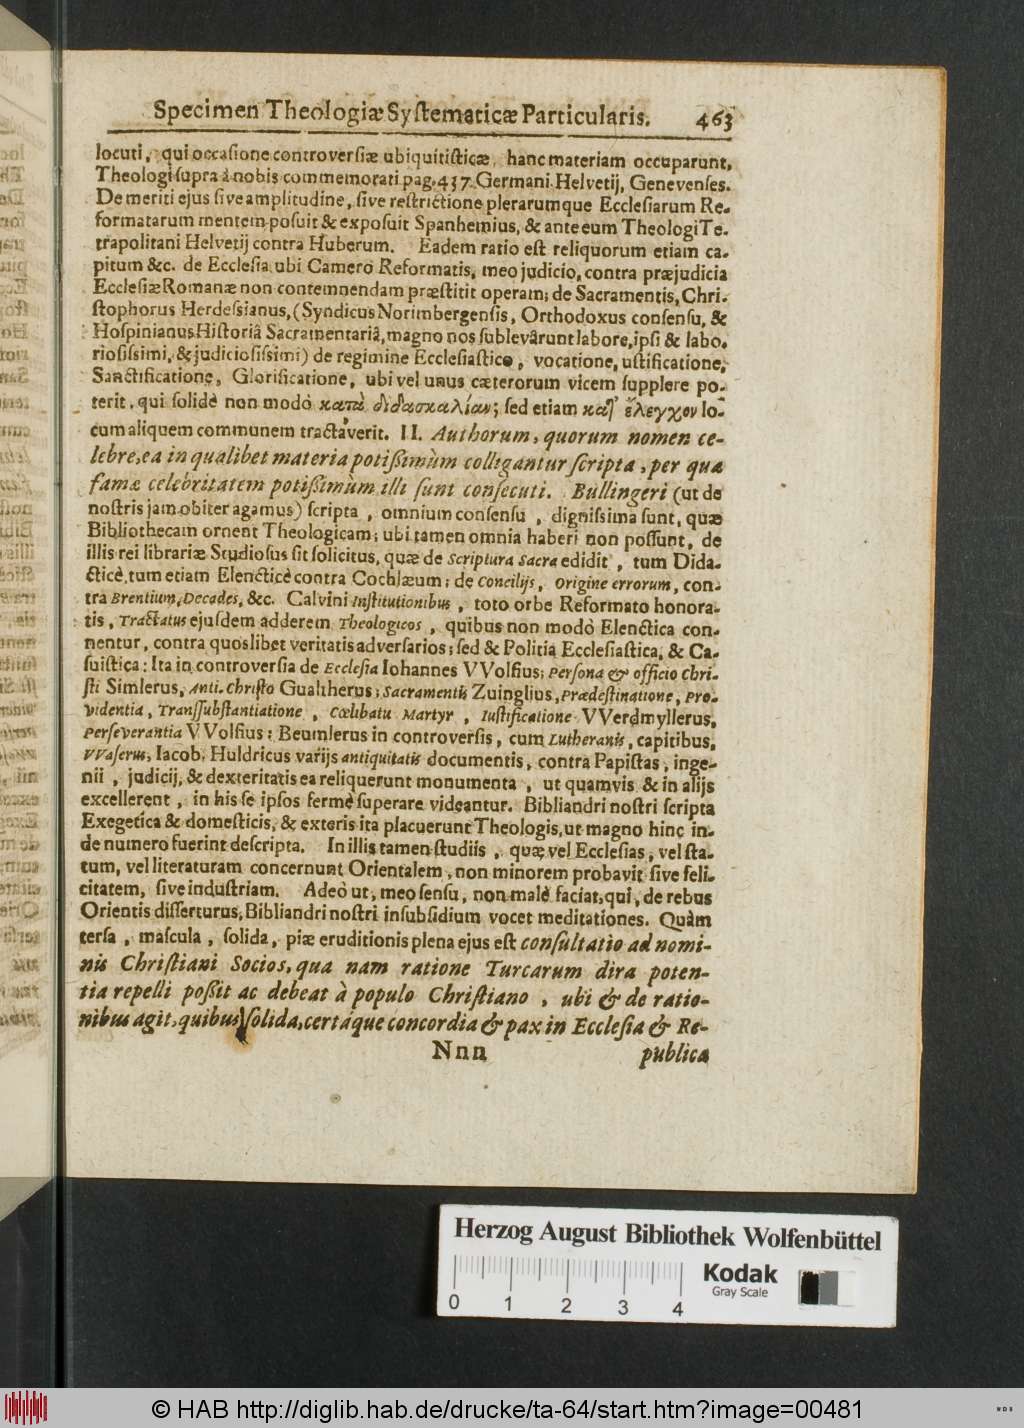 Specimen Theologiæ Systematicæ Particularis. 463
locuti, qui occasione controversiæ ubiquitisticæ, hanc materiam occuparunt,
Theologi supra à nobis commemorati pag. 437. Germani Helvetij, Genevenses.
De meriti ejus sive amplitudine, sive restrictione plerarumque Ecclesiarum Re-
formatarum mentem posuit & exposuit Spanhemius, & ante eum Theologi Te-
trapolitani Helvetij contra Huberum. Eadem ratio est reliquorum etiam ca-
pitum &c. de Ecclesia ubi Camero Reformatis, meo judicio, contra præjudicia
Ecclesiæ Romanæ non contemnendam præstitit operam; de Sacramentis, Chri-
stophorus Herdessianus, (Syndicus Norimbergensis, Orthodoxus consensu, &
Hospinianus Historiâ Sacramentariâ, magno nos sublevârunt labore, ipsi & labo-
riosissimi, & judiciosissimi) de regimine Ecclesiastico, vocatione, ustificatione,
Sanctificatione, Glorificatione, ubi vel unus cæterorum vicem supplere po-
terit, qui solidè non modò κατὰ διδασκαλίαν; sed etiam κατ' ἔλεγχον lo-
cum aliquem communem tractaverit. II. Authorum, quorum nomen ce-
lebre, ea in qualibet materia potißimùm colligantur scripta, per qua
famæ celebritatem potißimùm illi sunt consecuti. Bullingeri (ut de
nostris jam obiter agamus) scripta, omnium consensu, dignissima sunt, quæ
Bibliothecam ornent Theologicam; ubi tamen omnia haberi non possunt, de
illis rei librariæ Studiosus sit solicitus, quæ de Scriptura Sacra edidit, tum Dida-
cticè, tum etiam Elencticè contra Cochlæum; de Concilijs, Origine errorum, con-
tra Brentium, Decades, &c. Calvini Institutionibus, toto orbe Reformato honora-
tis, Tractatus ejusdem adderem Theologicos, quibus non modò Elenctica con-
nentur, contra quoslibet veritatis adversarios; sed & Politia Ecclesiastica, & Ca-
suistica: Ita in controversia de Ecclesia Iohannes VVolfius; Persona & officio Chri-
sti Simlerus, Anti-Christo Gualtherus; Sacramentis Zuinglius, Prædestinatione, Pro-
videntia, Transsubstantiatione, Cœlibatu Martyr, Iustificatione VVerdmyllerus,
Perseverantia VVolfius: Beumlerus in controversis, cum Lutheranis, capitibus,
VVaserus, Iacob. Huldricus varijs antiquitatis documentis, contra Papistas, inge-
nii, judicij, & dexteritatis ea reliquerunt monumenta, ut quamvis & in alijs
excellerent, in his se ipsos fermè superare videantur. Bibliandri nostri scripta
Exegetica & domesticis, & exteris ita placuerunt Theologis, ut magno hinc in-
de numero fuerint descripta. In illis tamen studiis, quæ vel Ecclesias, vel sta-
tum, vel literaturam concernunt Orientalem, non minorem probavit sive feli-
citatem, sive industriam. Adeò ut, meo sensu, non malè faciat, qui, de rebus
Orientis disserturus, Bibliandri nostri in subsidium vocet meditationes. Quàm
tersa, mascula, solida, piæ eruditionis plena ejus est consultatio ad nomi-
nis Christiani Socios, qua nam ratione Turcarum dira poten-
tia repelli poßit ac debeat à populo Christiano, ubi & de ratio-
nibus agit, quibus solida, certáque concordia & pax in Ecclesia & Re-
Nnn publica
Herzog August Bibliothek Wolfenbüttel
Kodak
Gray Scale
0 1 2 3 4
© HAB http://diglib.hab.de/drucke/ta-64/start.htm?image=00481